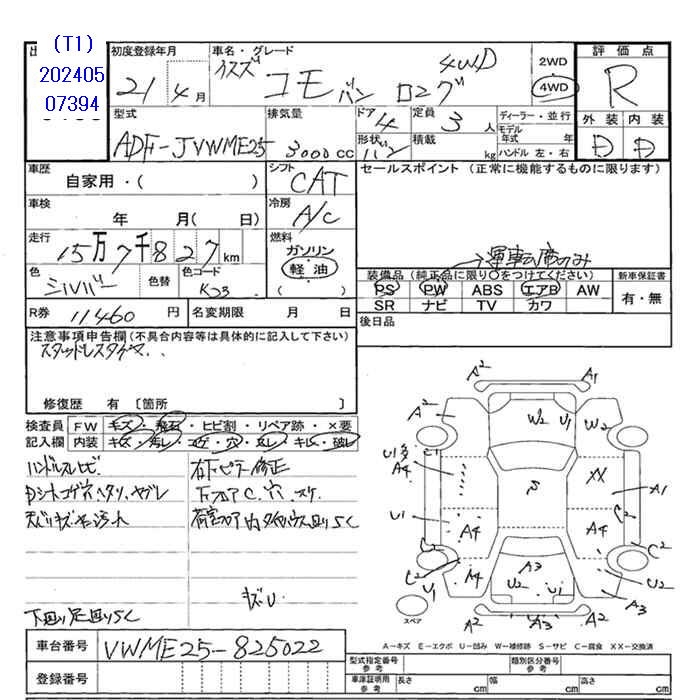 (T1)
202405
07394
初度登録年月
21 4 月
車名・グレード
いすゞ コモ バン ロング 4WD
2WD
4WD
評価点
R
外装 内装
D D
型式
ADF-JVWME25
排気量
3000 cc
ドア
4
形状
定員
3 人
積載
kg
ディーラー・並行
モデル年式 年
ハンドル 左・右
車歴
自家用・( )
シフト
CAT
車検
年 月( 日)
冷房
A/C
走行
15万7千827km
燃料
ガソリン
・
軽油
色
シルバー
色替
色コード
K23
R券 11460 円
名変期限 月 日
セールスポイント (正常に機能するものに限ります)
→運転席のみ
装備品(純正品に限り○をつけてください)
PS PW ABS エアB AW
SR ナビ TV カワ
新車保証書
有・無
後日品
注意事項申告欄(不具合内容等は具体的に記入して下さい)
スタッドレスタイヤ..
修復歴 有 〔箇所 〕
検査員記入欄
FW キズ・飛石・ヒビ割・リペア跡・×要
内装 キズ・汚レ・コゲ・穴・スレ・キレ・破レ
ハンドルスレ
Dシートコゲ穴、ヘタリ、ヤブレ
天バリキズ
右下ピラー修正
下フロアC、穴
荷室フロア内タイヤハウス回りSC
キズU
下回り足回りSC
A2 A1
A2 W2 U1 W2
U1 A4 XX
A1
S
U1 A4 A4
C2
C2
A3
U2 U1
U1 U2
A2 A3 A3
スペア
A－キズ E－エクボ U－凹み W－補修跡 S－サビ C－腐食 XX－交換済
車台番号 VWME25-825022
登録番号
型式指定番号
参考
類別区分番号
参考
車庫証明用
参考
長さ cm
幅 cm
高さ cm